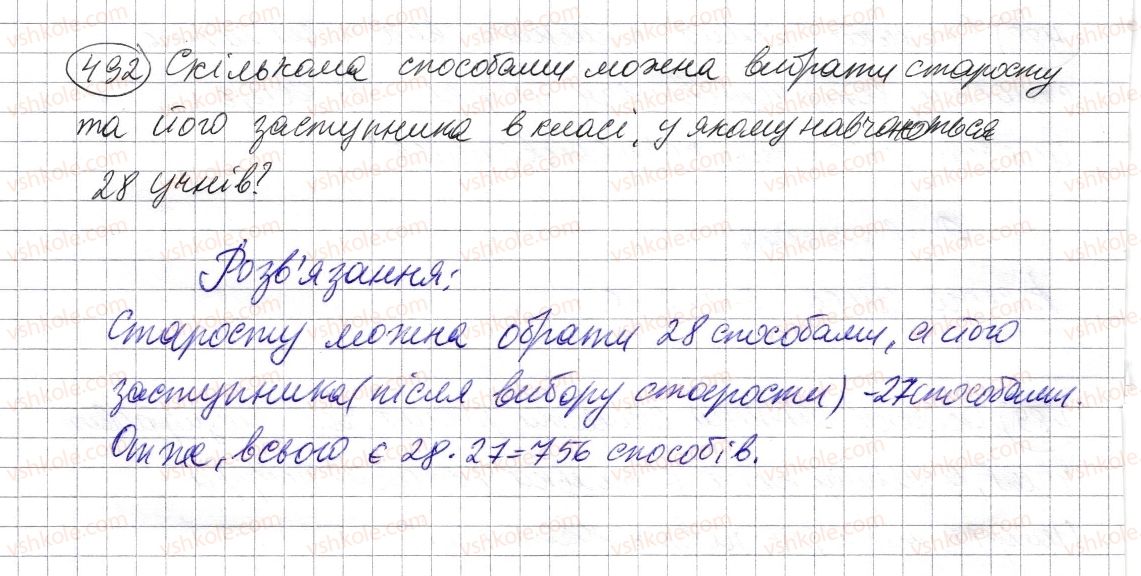 492 Скількома способами можна вибрати старосту
та його заступника в класі, у якому навчаються
28 учнів?
Розв'язання:
Старосту можна обрати 28 способами, а його
заступника (після вибору старости) - 27 способами.
Отже, всього є 28·27=756 способів.